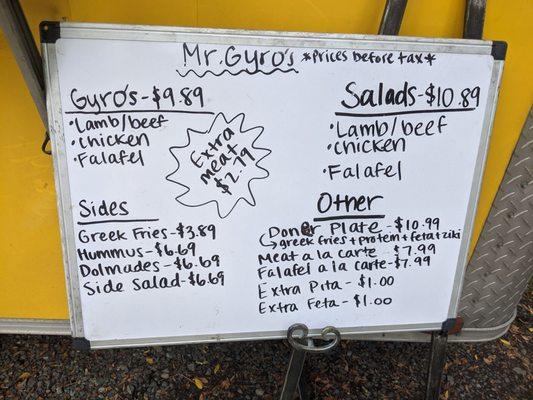 Mr. Gyro's *Prices before tax*
Gyro's-$9.89
•Lamb/beef
•Chicken
•Falafel
Extra
meat
$2.79
Salads-$10.89
•Lamb/beef
•Chicken
•Falafel
Sides
Greek Fries-$3.89
Hummus-$6.69
Dolmades-$6.69
Side Salad-$6.69
Other
Doner Plate-$10.99
greek fries+protein+feta+ziki
Meat a la carte-$7.99
Falafel a la carte-$7.99
Extra Pita-$1.00
Extra Feta-$1.00